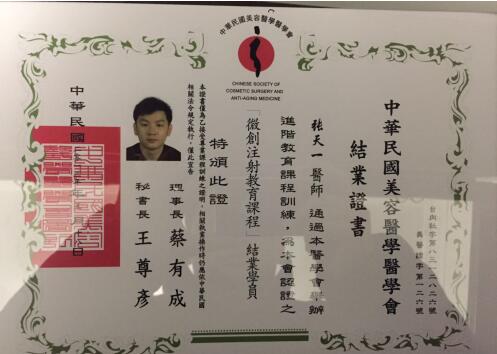 中華民國美容醫學醫學會
CHINESE SOCIETY OF
COSMETIC SURGERY AND
ANTI-AGING MEDICINE
中華民國美容醫學醫學會
結業證書
张天一醫師 通過本醫學會舉辦
進階教育課程訓練,為本會認證之
「微創注射教育課程」結業學員
特頒此證
本證書僅為乙接受專業課程訓練之證明,相關執業操作時仍應依中華民國
相關法令規定執行,僅此宣告
理事長 蔡有成
秘書長 王尊彥
中華民國